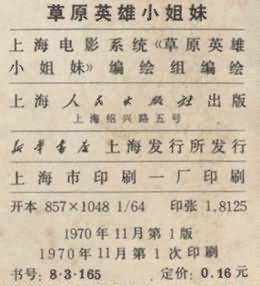 草原英雄小姐妹
上海电影系统《草原英雄
小姐妹》编绘组编绘
上海人民出版社出版
上海绍兴路五号
新华书店 上海发行所发行
上海市印刷一厂印刷
开本 857×1048 1/64 印张 1.8125
1970年11月第1版
1970年11月第1次印刷
书号: 8·3·165 定价: 0.16元